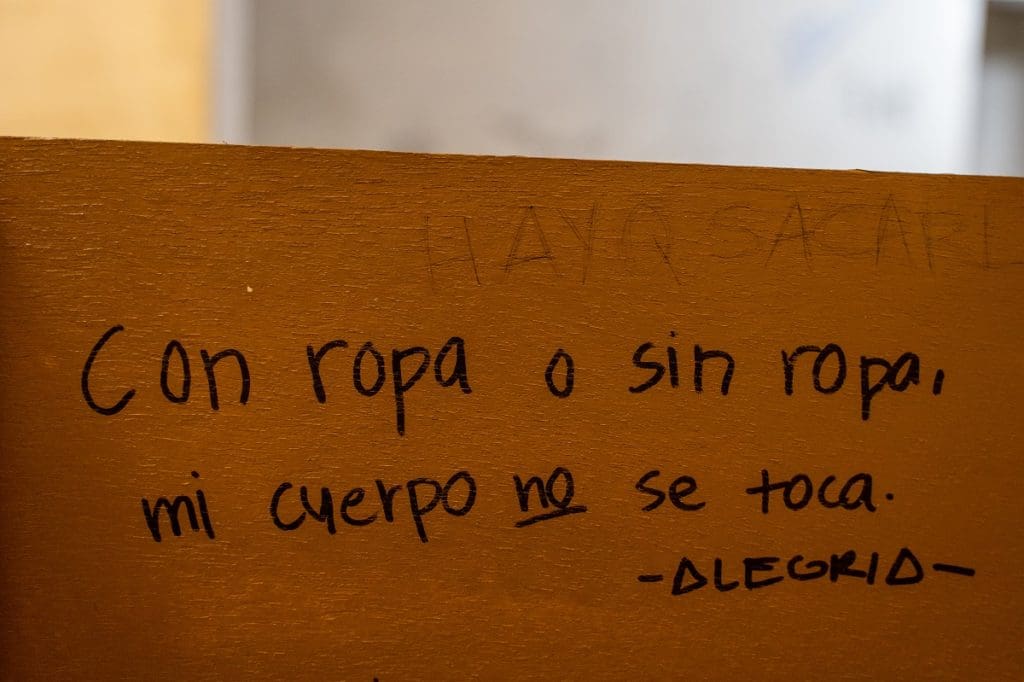 HAYA SACARL
Con ropa o sin ropa,
mi cuerpo no se toca.
-ALEGRIA-